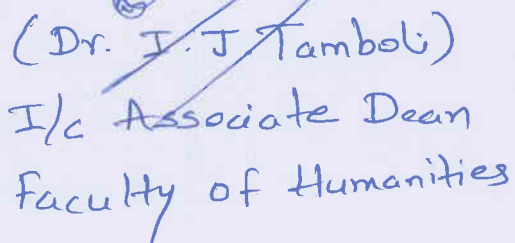 (Dr. I. J. Tamboli)
I/c Associate Dean
Faculty of Humanities